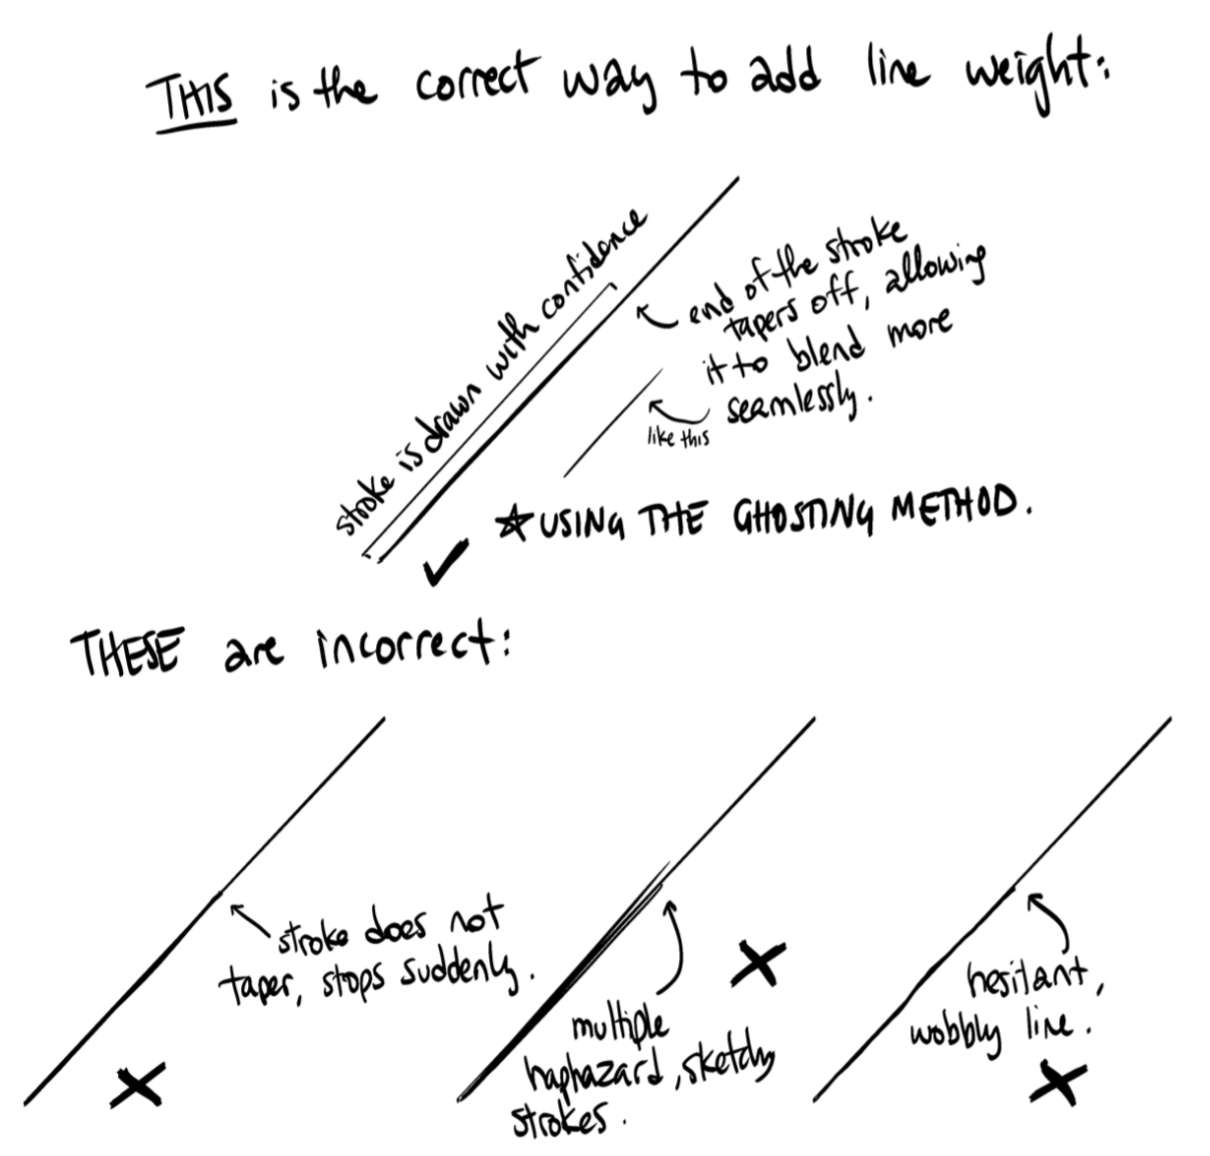 THIS is the correct way to add line weight:
stroke is drawn with confidence
end of the stroke
tapers off, allowing
it to blend more
seamlessly.
like this
☆ USING THE GHOSTING METHOD.
THESE are incorrect:
stroke does not
taper, stops suddenly.
multiple
haphazard, sketchy
strokes.
hesitant,
wobbly line.